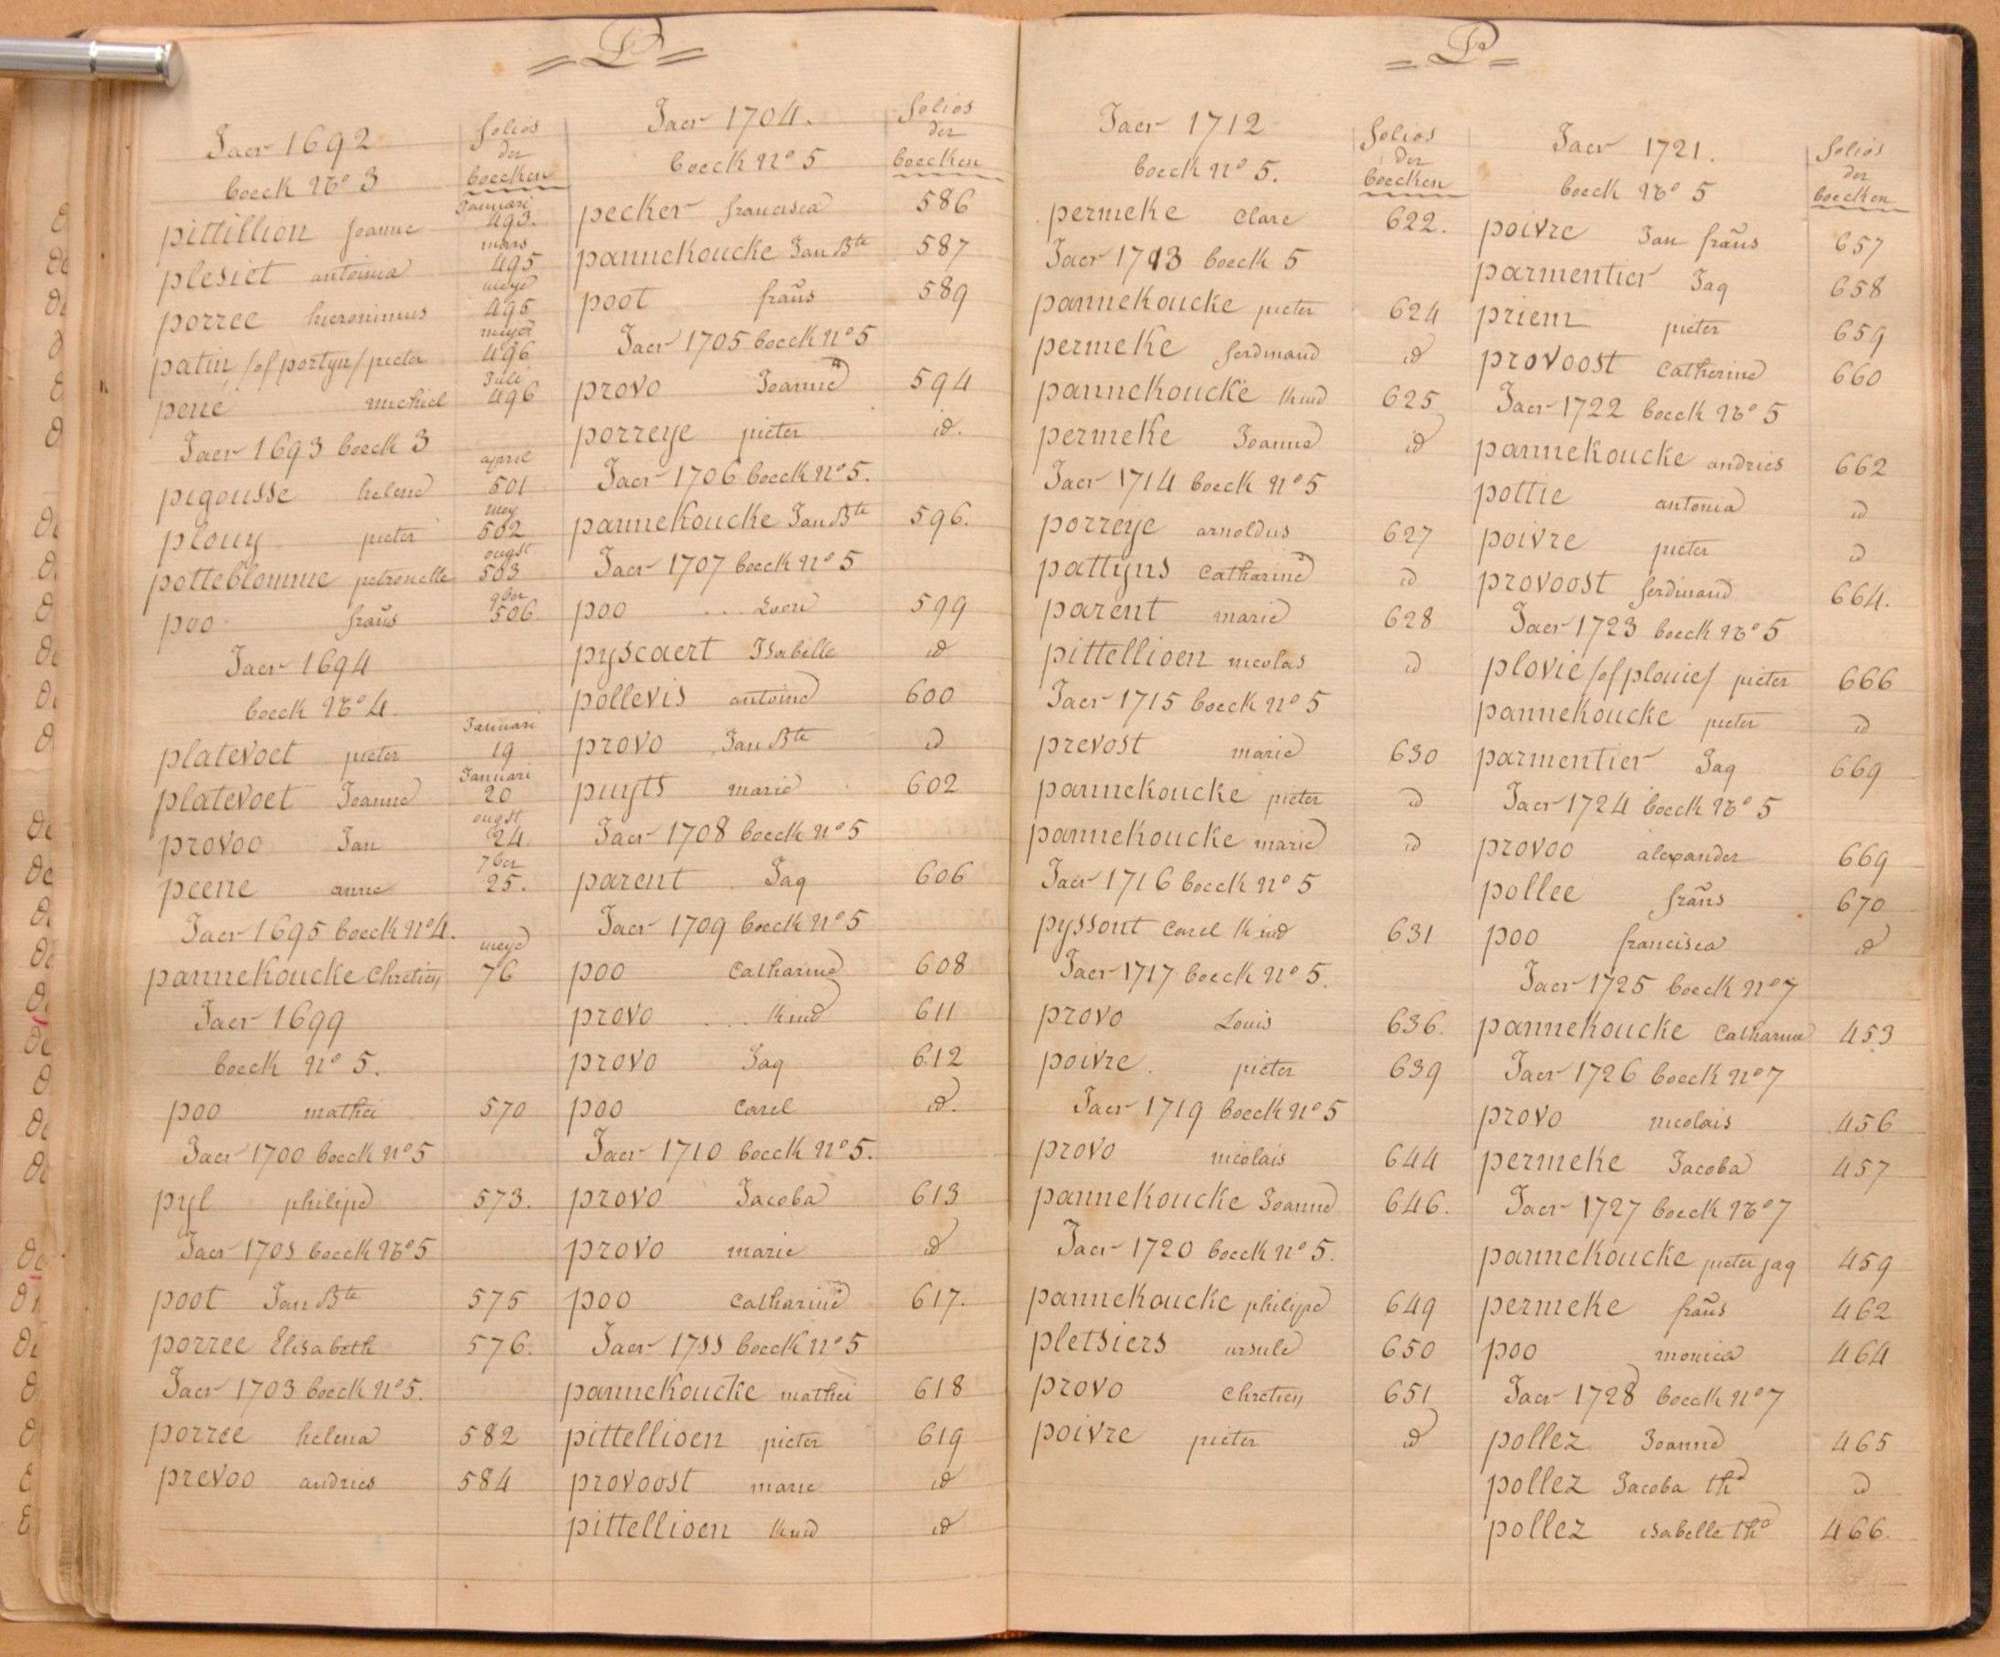 P
Jaer 1692
boeck No 3
folios
der
boecken
pittillion Joanne Januari 493.
plesiet antonia mars 495
porree hieronimus meye 495
patin /of portyn/ pieter meye 496
pene michiel Juli 496
Jaer 1693 boeck 3
pigousse helene april 501
plouy pieter mey 502
potteblomme petronelle ougst 503
poo frans 9ber 506
Jaer 1694
boeck No 4.
platevoet pieter Januari 19
platevoet Joanne Januari 20
provoo Jan ougst 24
peene anne 7ber 25.
Jaer 1695 boeck No 4.
pannekoucke Chretien meye 76
Jaer 1699
boeck No 5.
poo mathei 570
Jaer 1700 boeck No 5
pyl philipe 573.
Jaer 1701 boeck No 5
poot Jan Bte 575
porree Elisabeth 576.
Jaer 1703 boeck No 5.
porree helena 582
prevoo andries 584
Jaer 1704.
boeck No 5
folios
der
boecken
pecker francisca 586
pannekoucke Jan Bte 587
poot frans 589
Jaer 1705 boeck No 5
provo Joanne 594
porreye pieter id.
Jaer 1706 boeck No 5.
pannekoucke Jan Bte 596.
Jaer 1707 boeck No 5
poo ... 599
pyscaert Isabelle id
pollevis antoine 600
provo Jan Bte id
puyts marie 602
Jaer 1708 boeck No 5
parent Jaq 606
Jaer 1709 boeck No 5
poo Catharine 608
provo ... kind 611
provo Jaq 612
poo Carel id.
Jaer 1710 boeck No 5.
provo Jacoba 613
provo marie id
poo Catharine 617.
Jaer 1711 boeck No 5
pannekoucke mathei 618
pittellioen pieter 619
provoost marie id
pittellioen kind id
P
Jaer 1712
boeck No 5.
folios
der
boecken
permeke Clare 622.
Jaer 1713 boeck 5
pannekoucke pieter 624
permeke ferdinand id
pannekoucke kind 625
permeke Joanne id
Jaer 1714 boeck No 5
porreye arnoldus 627
pattyns Catharine id
parent marie 628
pittellioen nicolas id
Jaer 1715 boeck No 5
prevost marie 630
pannekoucke pieter id
pannekoucke marie id
Jaer 1716 boeck No 5
pyssont Carel kind 631
Jaer 1717 boeck No 5.
provo Louis 636.
poivre pieter 639
Jaer 1719 boeck No 5
provo nicolais 644
pannekoucke Joanne 646.
Jaer 1720 boeck No 5.
pannekoucke philipe 649
pletsiers ursule 650
provo Chretien 651
poivre pieter id
Jaer 1721.
boeck No 5
folios
der
boecken
poivre Jan frans 657
parmentier Jaq 658
priem pieter 659
provoost Catherine 660
Jaer 1722 boeck No 5
pannekoucke andries 662
pottie antonia id
poivre pieter id
provoost ferdinand 664.
Jaer 1723 boeck No 5
plovie /of plouie/ pieter 666
pannekoucke pieter id
parmentier Jaq 669
Jaer 1724 boeck No 5
provoo alexander 669
pollee frans 670
poo francisca id
Jaer 1725 boeck No 7
pannekoucke Catharine 453
Jaer 1726 boeck No 7
provo nicolais 456
permeke Jacoba 457
Jaer 1727 boeck No 7
pannekoucke pieter jaq 459
permeke frans 462
poo monica 464
Jaer 1728 boeck No 7
pollez Joanne 465
pollez Jacoba the id
pollez isabelle the 466.